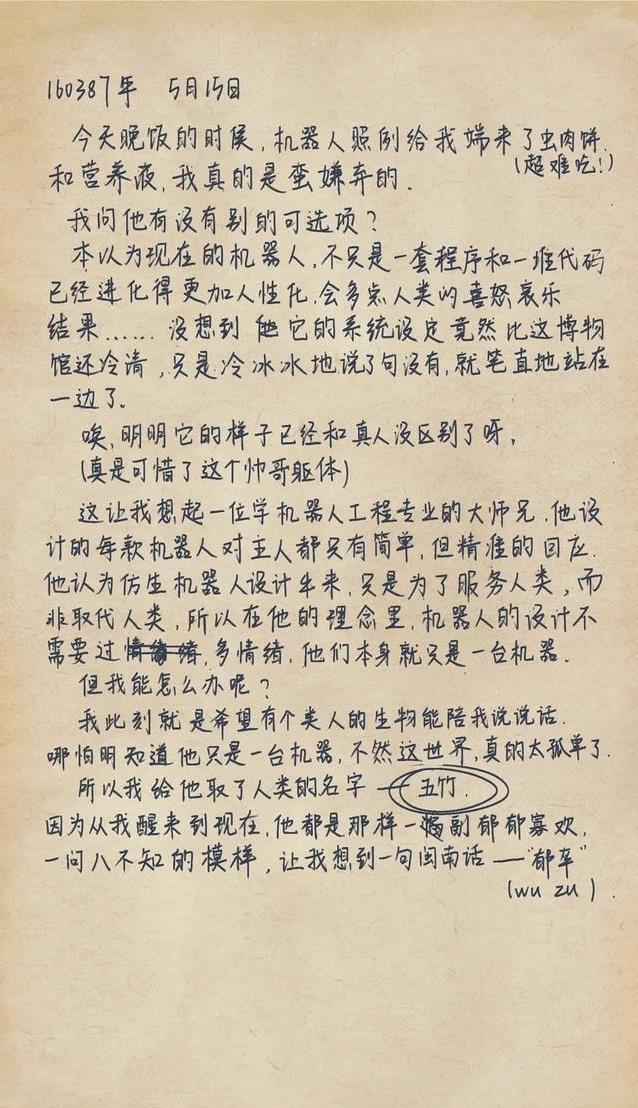 160387年 5月15日
今天晚饭的时候,机器人照例给我端来了虫肉饼.
(超难吃!)
和营养液,我真的是蛮嫌弃的.
我问他有没有别的可选项?
本以为现在的机器人,不只是一套程序和一堆代码
已经进化得更加人性化,会多点人类的喜怒哀乐
结果…… 没想到 它的系统设定竟然比这博物
馆还冷清,只是冷冰冰地说了句没有,就笔直地站在
一边了。
唉,明明它的样子已经和真人没区别了呀,
(真是可惜了这个帅哥躯体)
这让我想起一位学机器人工程专业的大师兄.他设
计的每款机器人对主人都只有简单,但精准的回应.
他认为仿生机器人设计出来,只是为了服务人类,而
非取代人类,所以在他的理念里,机器人的设计不
需要过 多情绪.他们本身就只是一台机器.
但我能怎么办呢?
我此刻就是希望有个类人的生物能陪我说说话.
哪怕明知道他只是一台机器,不然这世界,真的太孤单了.
所以我给他取了人类的名字 — 五竹.
因为从我醒来到现在,他都是那样一副郁郁寡欢,
一问八不知的模样,让我想到一句闽南话 — "郁卒"
(wu zu).